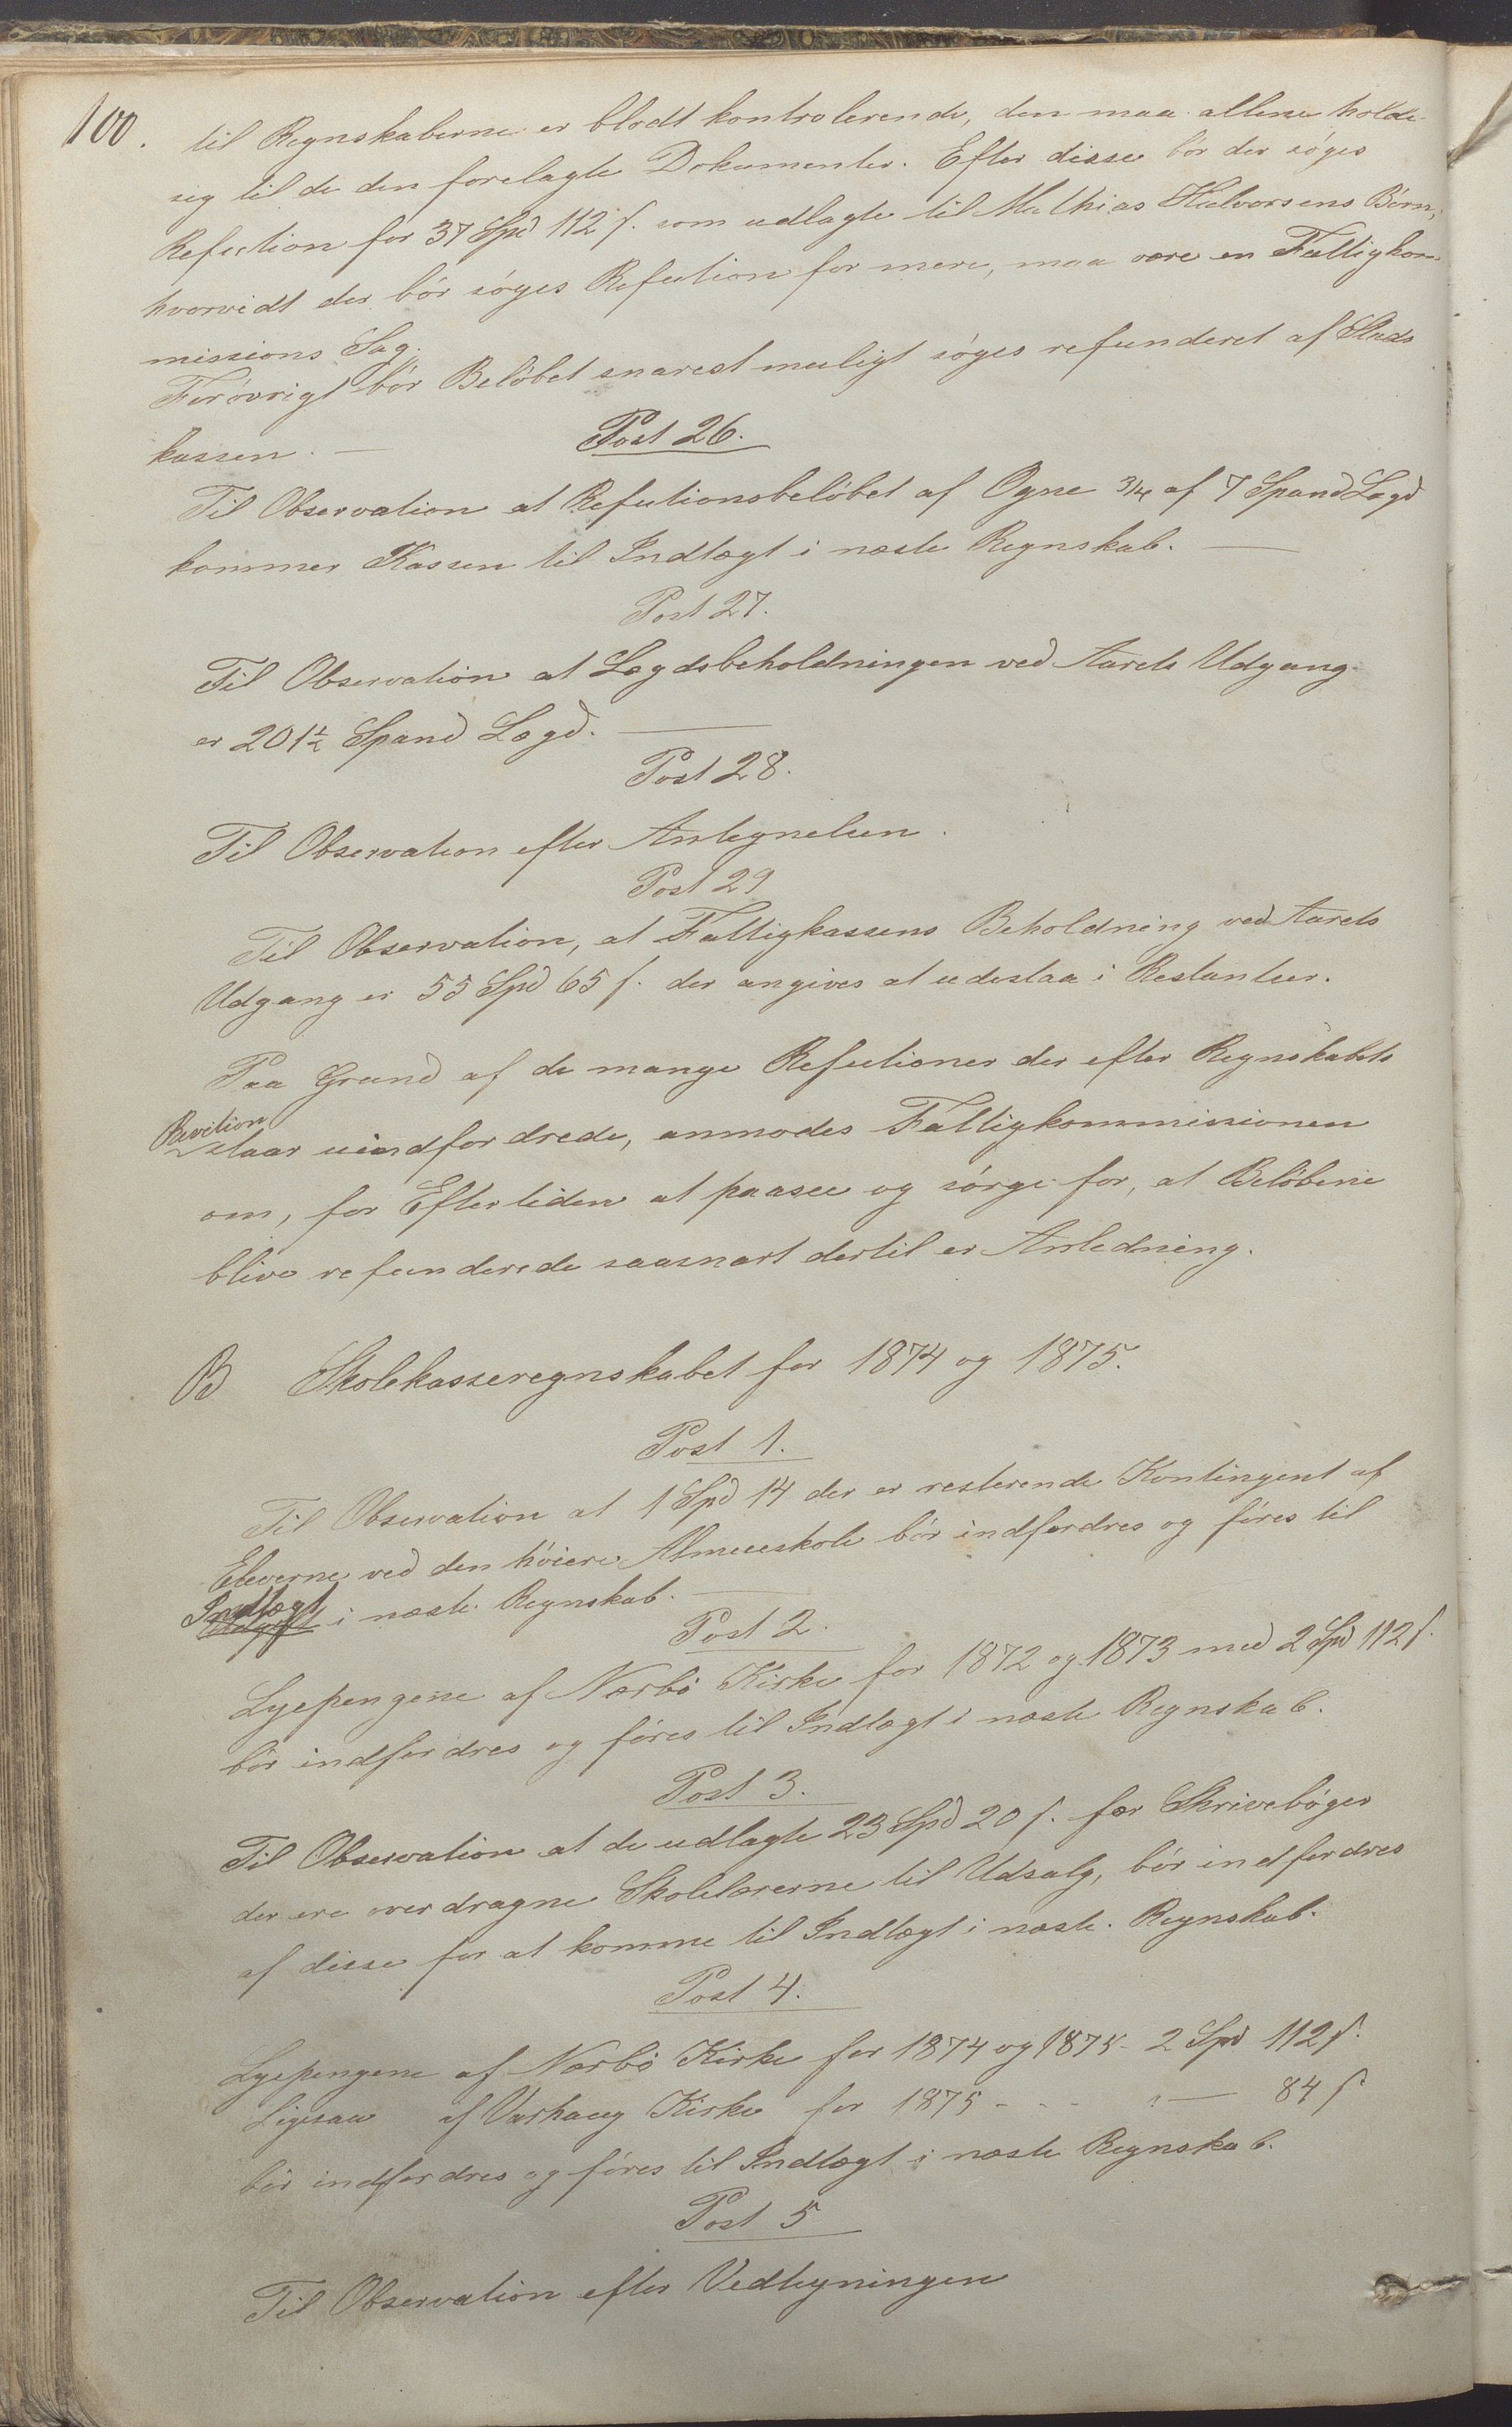 100.
til Regnskaberne er blodt kontrolerende, den maa allene holde
sig til de den forelagte Dokumenter. Efter disse bør der søges
Refution for 37 Spd 112 s. som udlagte til Mathias Halvorsens Børn;
hvorvidt der bør søges Refution for mere, maa være en Fattigkom-
missions Sag.
Forøvrigt bør Beløbet snarest muligt søges refunderet af Stads
kassen. —
Post 26.
Til Observation at Refutionsbeløbet af Ogne 3/4 af 7 Spand Lægd
kommer Kassen til Indtægt i næste Regnskab. —
Post 27.
Til Observation at Lægdsbeholdningen ved Aarets Udgang
er 201½ Spand Lægd. —
Post 28.
Til Observation efter Antegnelsen.
Post 29
Til Observation, at Fattigkassens Beholdning ved Aarets
Udgang er 55 Spd 65 s. der angives at udestaa i Restantser.
Paa Grund af de mange Refutioner der efter Regnskabets
Revition
staar uindfordrede, anmodes Fattigkommissionen
om, for Eftertiden at paasee og sørge for, at Beløbene
blive refunderede saasnart dertil er Anledning.
B Skolekasseregnskabet for 1874 og 1875.
Post 1.
Til Observation at 1 Spd 14 der er resterende Kontingent af
Eleverne ved den høiere Almueskole bør indfordres og føres til
Indtægt
i næste Regnskab. —
Post 2.
Lyepengene af Nærbø Kirke for 1872 og 1873 med 2 Spd 112 s.
bør indfordres og føres til Indtægt i næste Regnskab.
Post 3.
Til Observation at de udlagte 23 Spd 20 s. for Skrivebøger
der ere overdragne Skolelærerne til Udsalg, bør indfordres
af disse for at komme til Indtægt i næste Regnskab.
Post 4.
Lyepengene af Nærbø Kirke for 1874 og 1875 - 2 Spd 112 s.
Ligesaa af Varhaug Kirke for 1875 - - - " — 84 s
bør indfordres og føres til Indtægt i næste Regnskab.
Post 5
Til Observation efter Vedtegningen